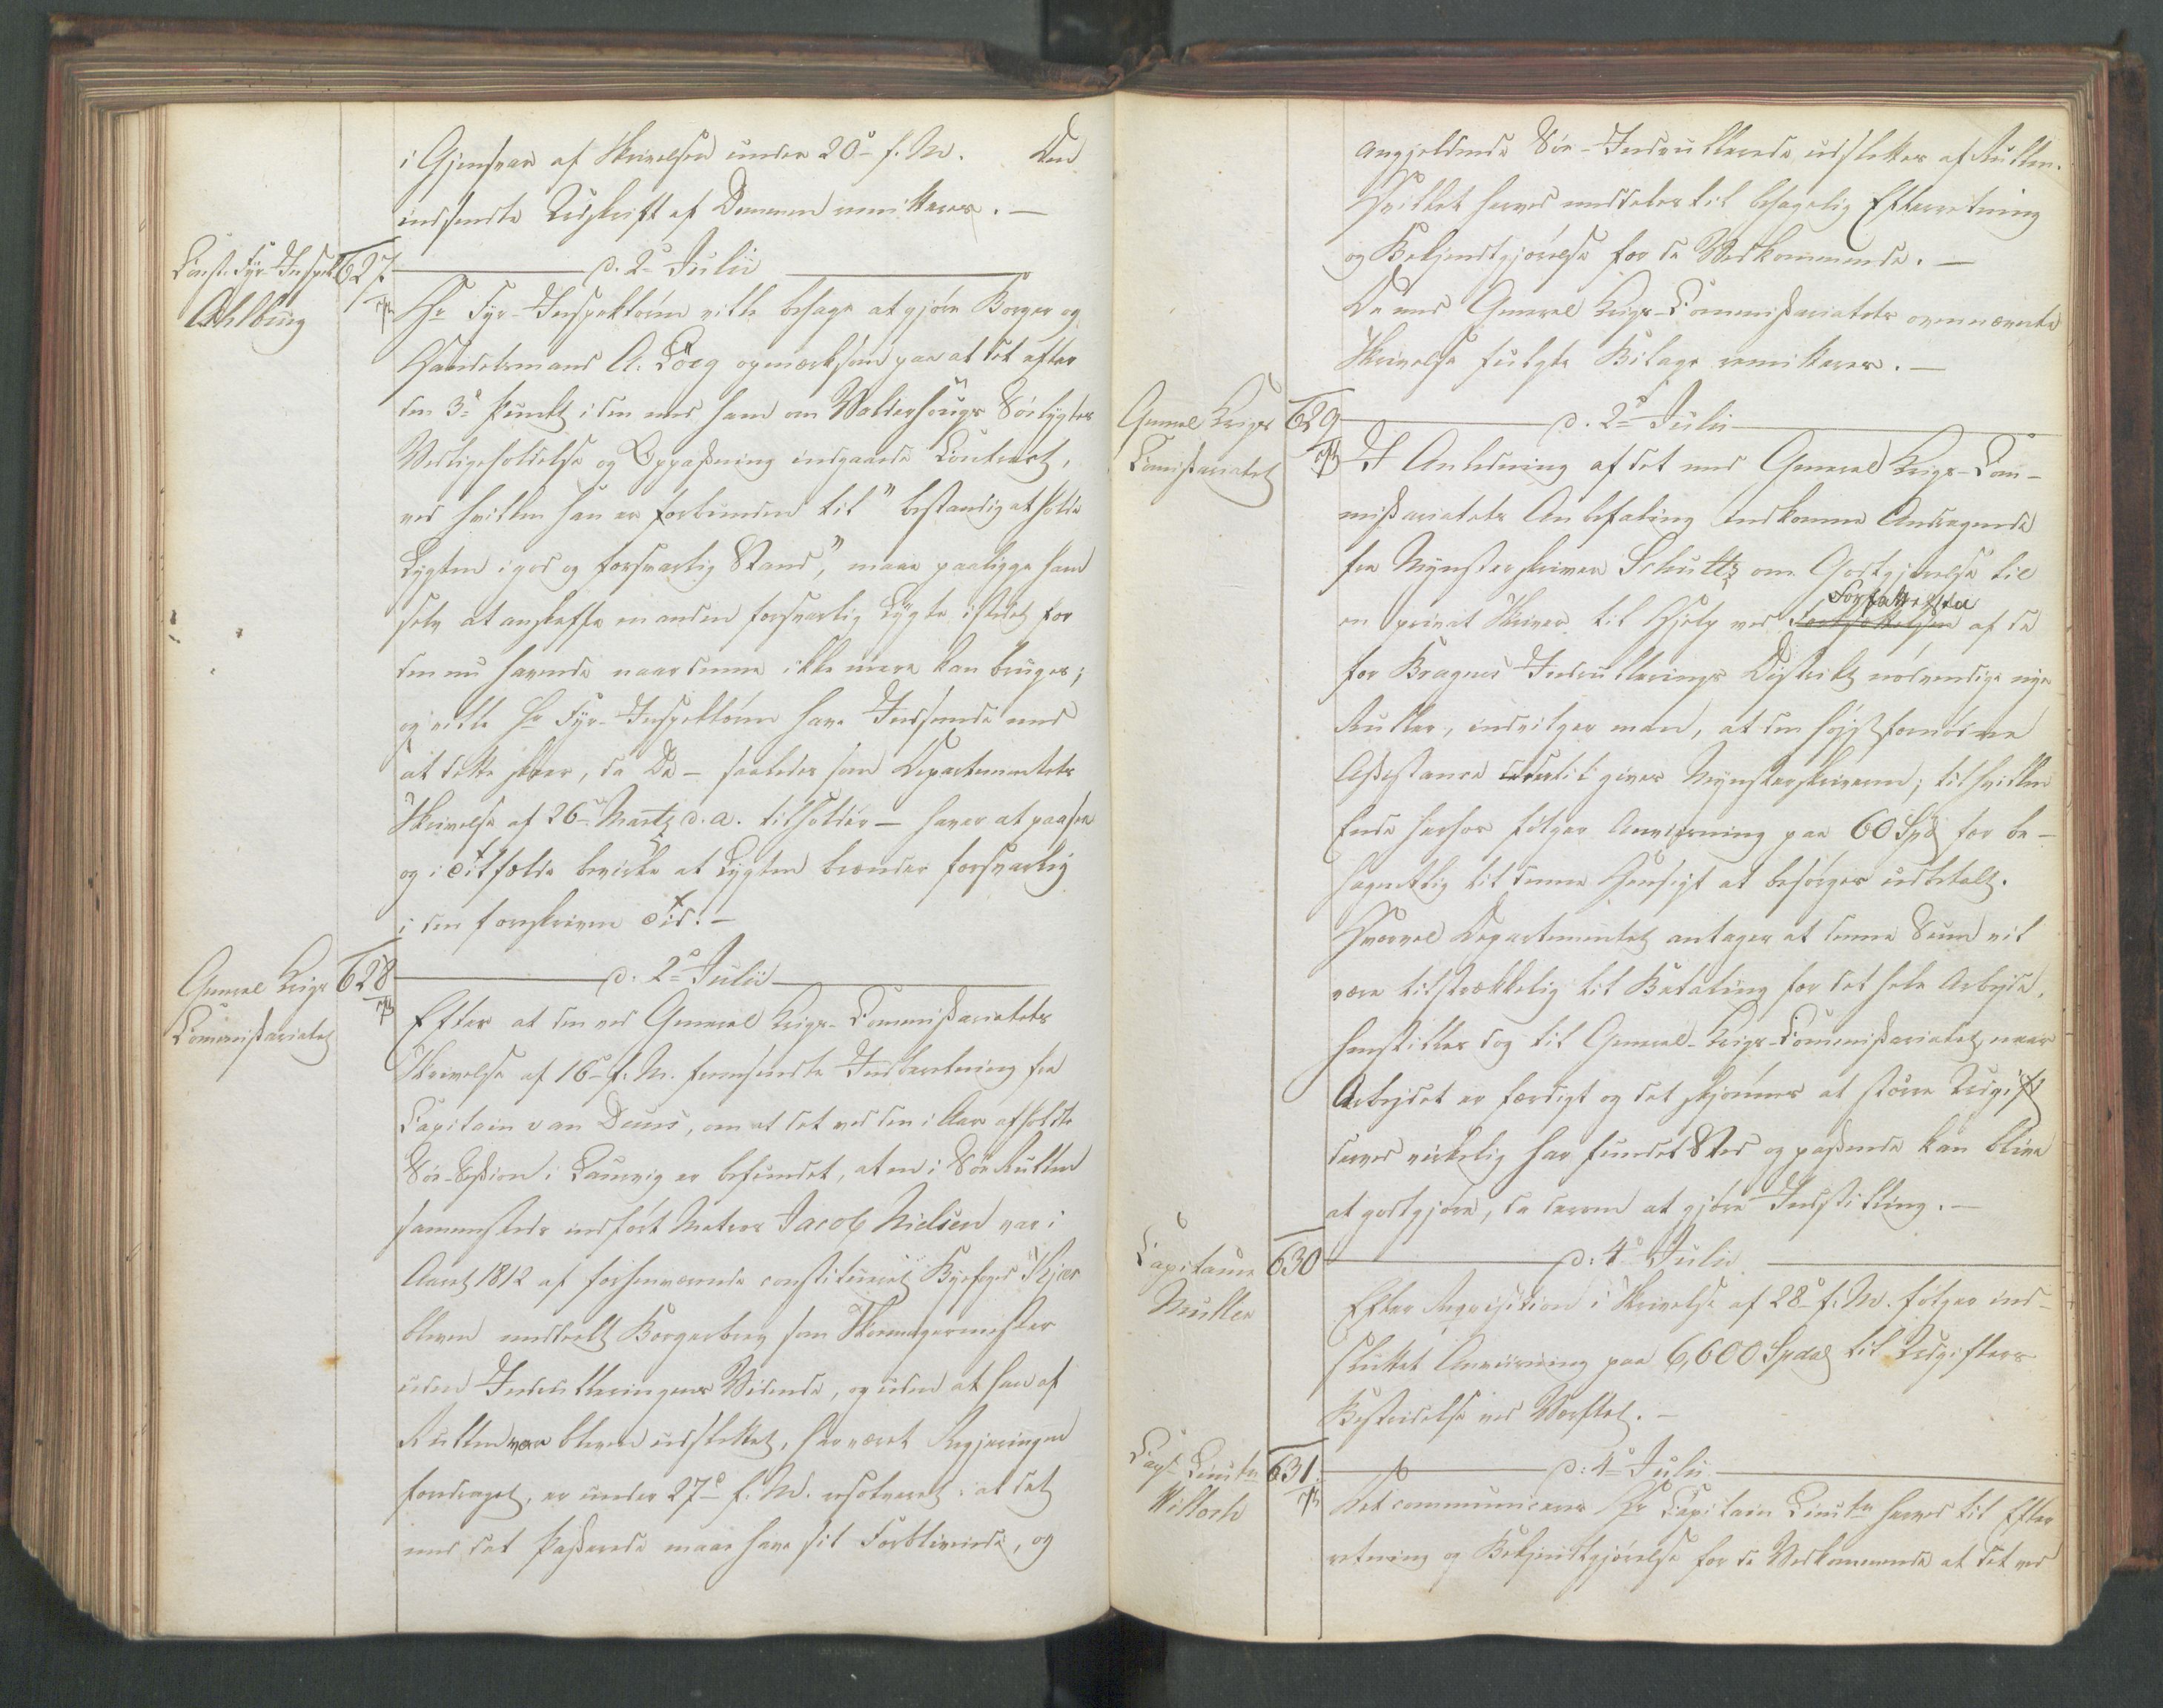 i Gjensvar af Skrivelsen under 20de f. M. Den
indsendte Udskrift af Dommen remitteres. —
Const. Fyr-Inspek. 627. d. 2de Julii
Ahlbüng
Hr Fyr-Inspekteuren ville behage at gjøre Borger og
Handelsmand A. Löeg opmærksom paa at det efter
den 3die Punkt i den med ham om Valderhougs Søe lygtes
Vedligeholdelse og Oppasning indgaaede Contract,
ved hvilken han er forbunden til "bestandig at holde
Lygten i god og forsvarlig Stand", maae paaligge ham
selv at anskaffe en anden forsvarlig Lygte istedet for
den nu havende naar denne ikke mere kan bruges;
og ville Hr Fyr-Inspekteuren have Indseende med
at dette skeer, da De — saaledes som Departementets
Skrivelse af 26de Martz d. a. tilholder — haver at paasee
og i Tilfælde bevirke at Lygten brænder forsvarlig
i den foreskrevne Tid. —
General Krigs 628 d. 2de Julii
Commissariatet
Efter at den ved General Krigs-Commissariatets
Skrivelse af 16de f. M. fremsendte Indberetning fra
Capitain van Deurs, om at det ved den i Aar afholdte
Søe-Session i Laurvig er befundet, at en i Søe Rullen
sammesteds indført Matros Jacob Nielsen var i
Aaret 1812 af forhenværende constitueret Byefoged Skjær
bleven meddeelt Borgerbrev som Skomagermester
uden Indrulleringens Vidende, og uden at han af
Rullen var bleven udslettet, har været Regjeringen
foredraget, er under 27de f. M. resolveret: at det
med det Passerede maae have sit Forblivende, og
angjeldende Søe-Indrullerede udslettes af Rullen.
Hvilket herved meddeles til behagelig Efterretning
og Bekjendtgjørelse for de Vedkommende. —
De med General Krigs-Commissariatets ovennævnte
Skrivelse fulgte Bilage remitteres. —
General Krigs 629 d. 2de Julii
Commissariatet
I Anledning af det med General Krigs-Com-
missariatets Anbefaling indkomne Andragende
fra Mynsterskriver Schultz om Godtgjørelse til
Forfattelsen
en privat Skriver til Hjelp ved af de
for Bragnes Indrullerings District nødvendige nye
Ruller, indvilger man, at den høist fornødne
Assistance dertil gives Mynsterskriveren; til hvilken
Ende herhos følger Anviisning paa 60 Spd for be-
hageligt til denne Hensigt at besørges udbetalt.
Hvorvel Departementet antager at denne Sum vil
være tilstrækkelig til Betaling for det hele Arbejde,
henstilles dog til General-Krigs-Commissariatet, naar
Arbejdet er færdigt og det skjønnes at større Udgift
derved virkelig har fundet Sted og passende kan blive
at godtgjøre, da derom at gjøre Indstilling. —
Capitaine 630 d: 4de Julii
Müller
Efter Reqvisition i Skrivelse af 28de f. M. følger ind-
sluttet Anviisning paa 6,600 Spdal til Udgifters
Bestridelse ved Værftet. —
Capt. Lieutn 631. d: 4de Julii
Willoch
Det communiceres Hr Capitain Lieutn herved til Efter
retning og Bekjendtgjørelse for de Vedkommende at det ved